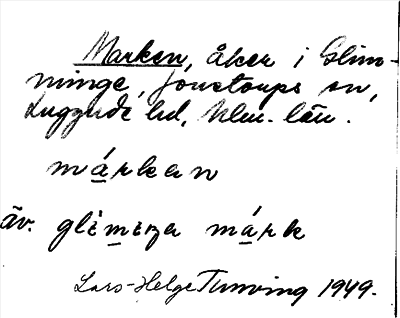 Marken, åker i Glim-
minge, Jonstorps sn,
Luggude hd, Mlm. län.
márkan
äv. glìmeŋa márk
Lars-Helge Tunving 1949.